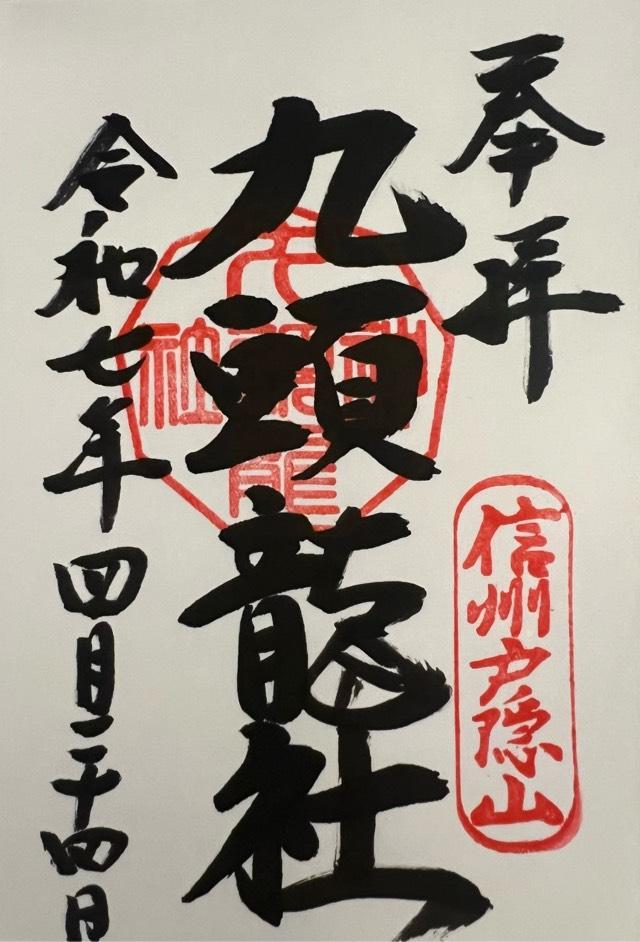 奉拝
信州戸隠山
九頭龍社
令和七年四月二十四日